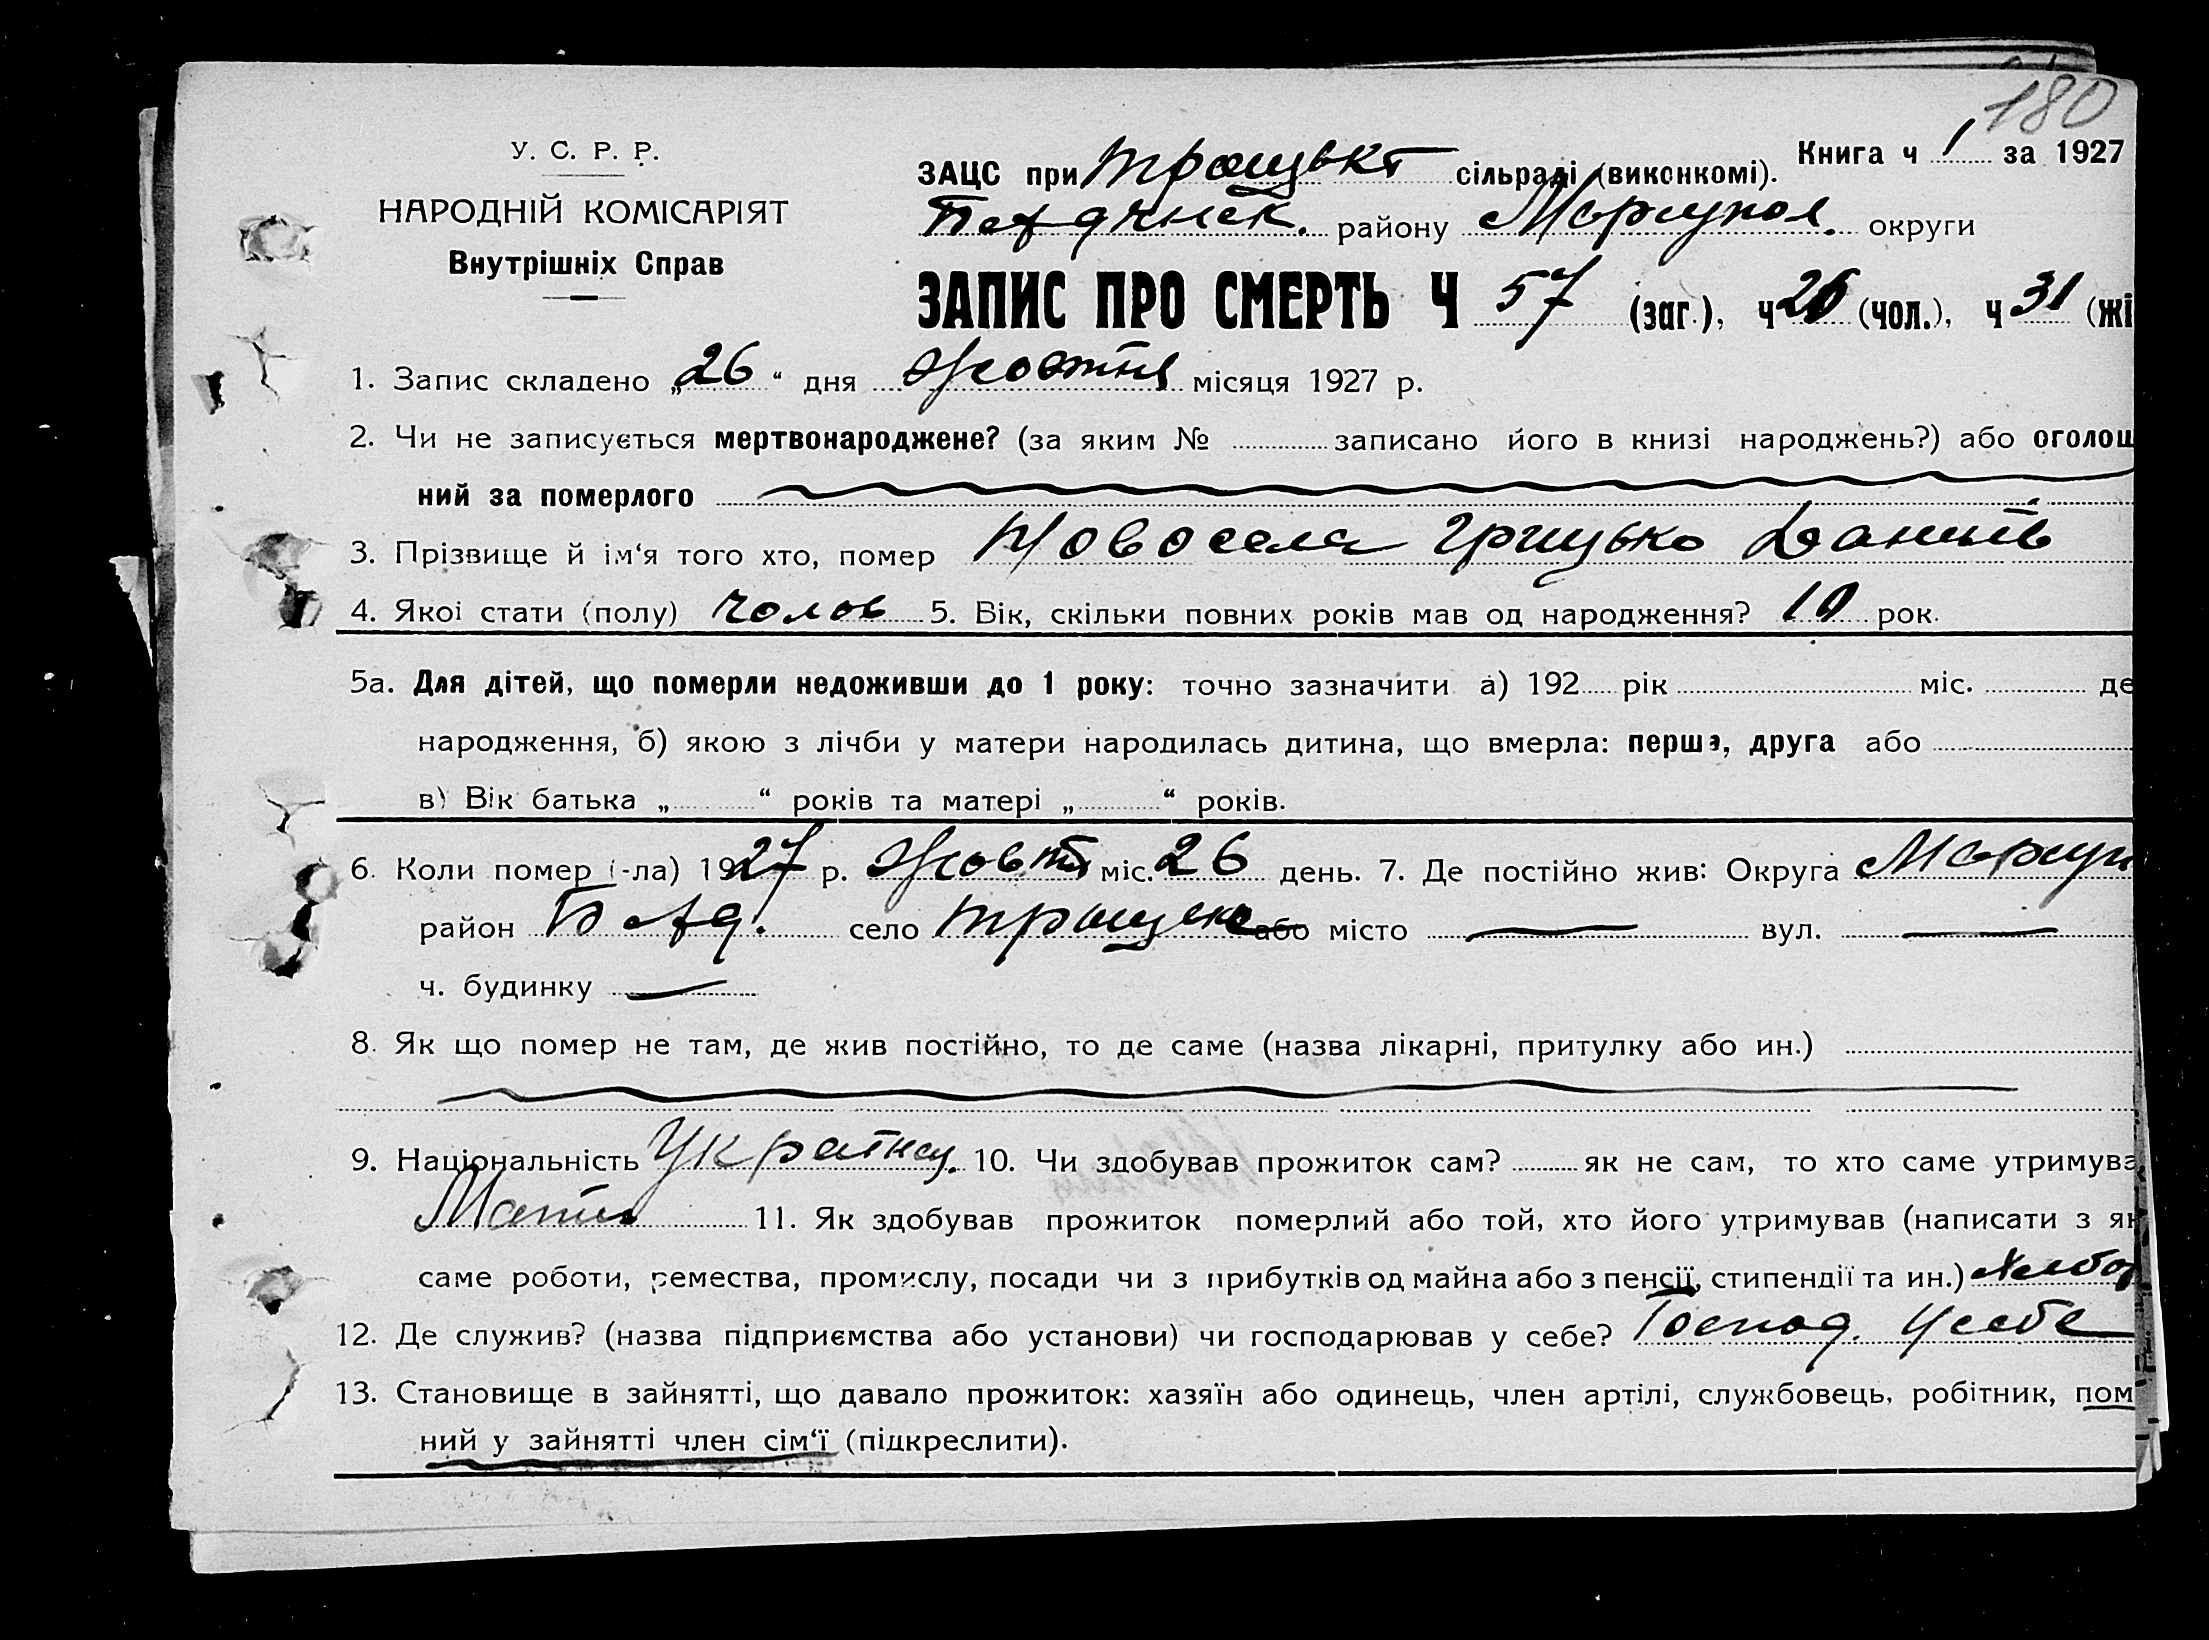 180
У. С. Р. Р.
НАРОДНІЙ КОМІСАРІЯТ
Внутрішніх Справ
Книга ч 1 за 1927
ЗАЦС при сільраді (виконкомі).
району Маріупол. округи
ЗАПИС ПРО СМЕРТЬ Ч 57 (заг.), ч 26 (чол.), ч 31 (жі
1. Запис складено „26“ дня Жовтня місяця 1927 р.
2. Чи не записується мертвонароджене? (за яким № записано його в книзі народжень?) або оголош
ний за померлого
3. Прізвище й ім‘я того хто, помер Новосела Грицько Данилів
4. Якої стати (полу) чолов 5. Вік, скільки повних років мав од народження? 10 рок.
5а. Для дітей, що померли недоживши до 1 року: точно зазначити а) 192 рік міс. де
народження, б) якою з лічби у матери народилась дитина, що вмерла: перша, друга або
в) Вік батька „ “ років та матері „ “ років.
6. Коли помер (-ла) 1927 р. Жовтн міс. 26 день. 7. Де постійно жив: Округа Маріуп
район село або місто вул.
ч. будинку
8. Як що помер не там, де жив постійно, то де саме (назва лікарні, притулку або ин.)
9. Національність Українец. 10. Чи здобував прожиток сам? як не сам, то хто саме утримува
Мати 11. Як здобував прожиток померлий або той, хто його утримував (написати з як
саме роботи, ремества, промислу, посади чи з прибутків од майна або з пенсії, стипендії та ин.) Хлебор
12. Де служив? (назва підприємства або установи) чи господарював у себе? Господ. у себе
13. Становище в зайнятті, що давало прожиток: хазяїн або одинець, член артілі, службовець, робітник, пом
ний у зайнятті член сім‘ї (підкреслити).